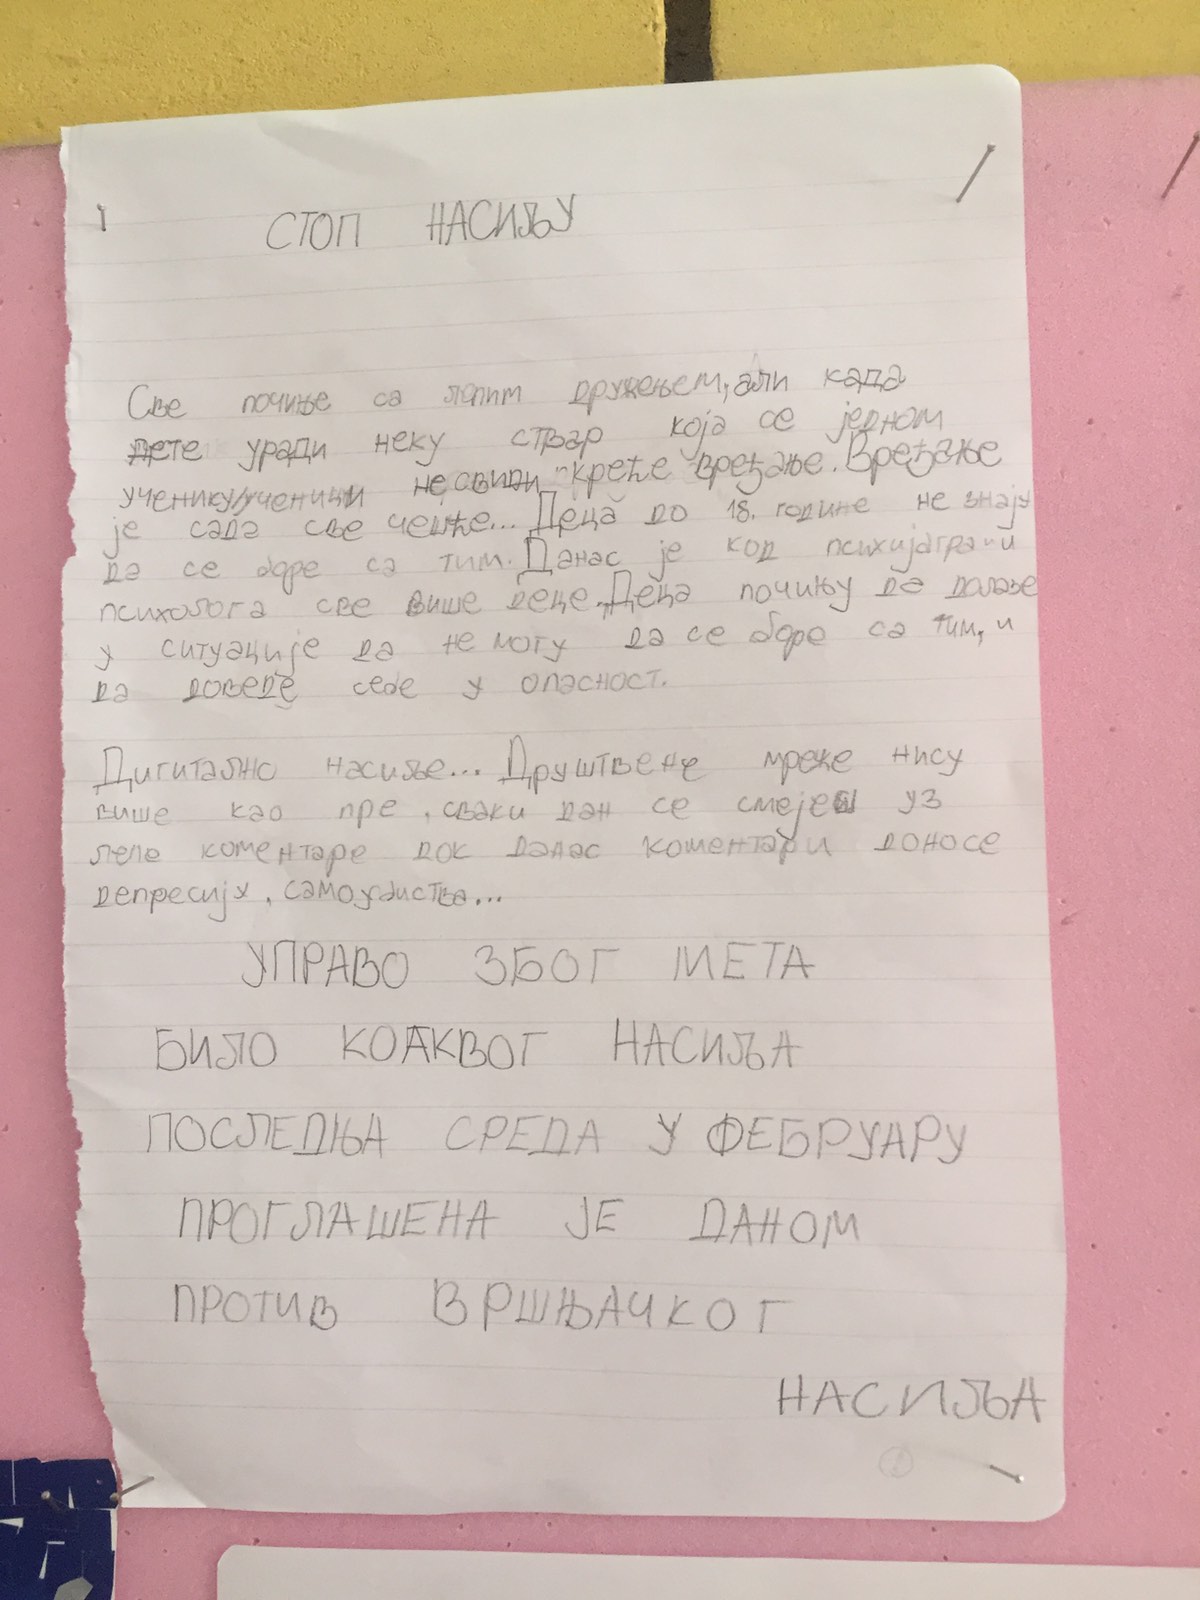 СТОП НАСИЉУ
Све почиње са лепим дружењем, али када
дете уради неку ствар која се једном
ученику/ученици не свиди креће вређање. Вређање
је сада све чешће... Деца до 18. године не знају
да се боре са тим. Данас је код психијатра и
психолога све више деце. Деца почињу да долазе
у ситуације да не могу да се боре са тим, и
да доведе себе у опасност.
Дигитално насиље... Друштвене мреже нису
више као пре, сваки дан се смејеш уз
лепе коментаре док данас коментари доносе
депресију, самоубиства...
УПРАВО ЗБОГ МЕТА
БИЛО КОАКВОГ НАСИЉА
ПОСЛЕДЊА СРЕДА У ФЕБРУАРУ
ПРОГЛАШЕНА ЈЕ ДАНОМ
ПРОТИВ ВРШЊАЧКОГ
НАСИЉА